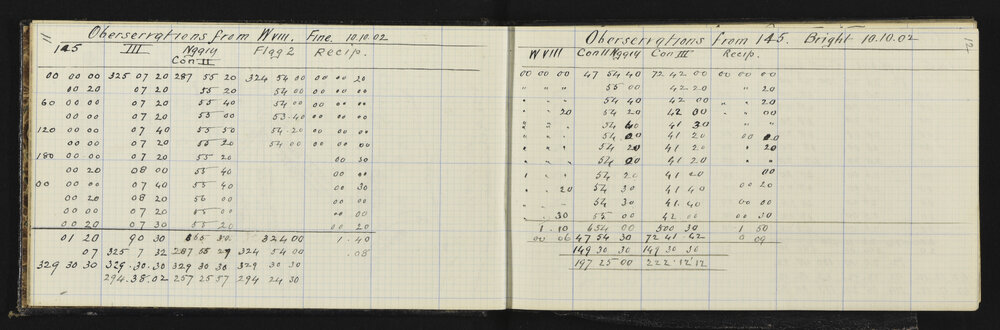 11
Oberservations from W VIII, Fine. 10.10.02
145 III Ngqiy Flag 2 Recip.
Con II
00 00 00 325 07 20 287 55 20 324 54 00 00 00 20
00 20 07 20 55 20 54 00 00 00 00
60 00 00 07 20 55 40 54 00 00 00 00
00 00 07 20 55 00 53.40 00 00 00
120 00 00 07 40 55 50 54.20 00 00 00
00 00 07 20 55 20 54 00 00 00 00
180 00 00 07 20 55 20 00 30
00 20 08 00 55 40 00 00
00 00 00 07 40 55 40 00 30
00 20 08 20 56 00 00 00
00 00 07 20 55 00 00 00
00 20 07 30 55 20 00 20
01 20 90 30 324 00 1.40
07 325 7 32 287 55 29 324 54 00 .08
329 30 30 329.30.30 329 30 30 329 30 30
294.38.02 257 25 57 294 24 30
12
Oberservations from 145. Bright 10.10.02
W VIII Con II Ngqiy Con III Recip.
00 00 00 47 54 40 72 42 00 00 00 00
" " " 55 00 42 20 " 20
" " " 54 40 42 00 " " 20
" " 20 54 20 42 00 " " 00
" " " 54 40 41 30 " "
" " " 54 00 41 20 00 20
" " " 54 20 41 20 " 20
" " " 54 00 41 20 " "
" " " 54 20 41 20 00
" " 20 54 30 41 40 00 20
54 30 41.40 00 00
" . 30 55 00 42 00 00 30
1.10 654 00 500 30 1 50
00 06 47 54 30 72 41 42 0 09
149 30 30 149 30 30
197 25 00 222.12.12